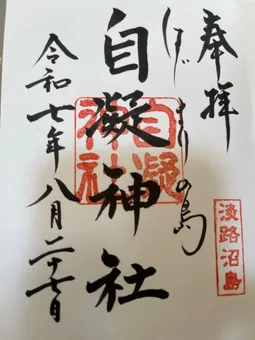 奉拝
はじまりの島
自凝神社
自凝神社
淡路沼島
令和七年八月二十七日